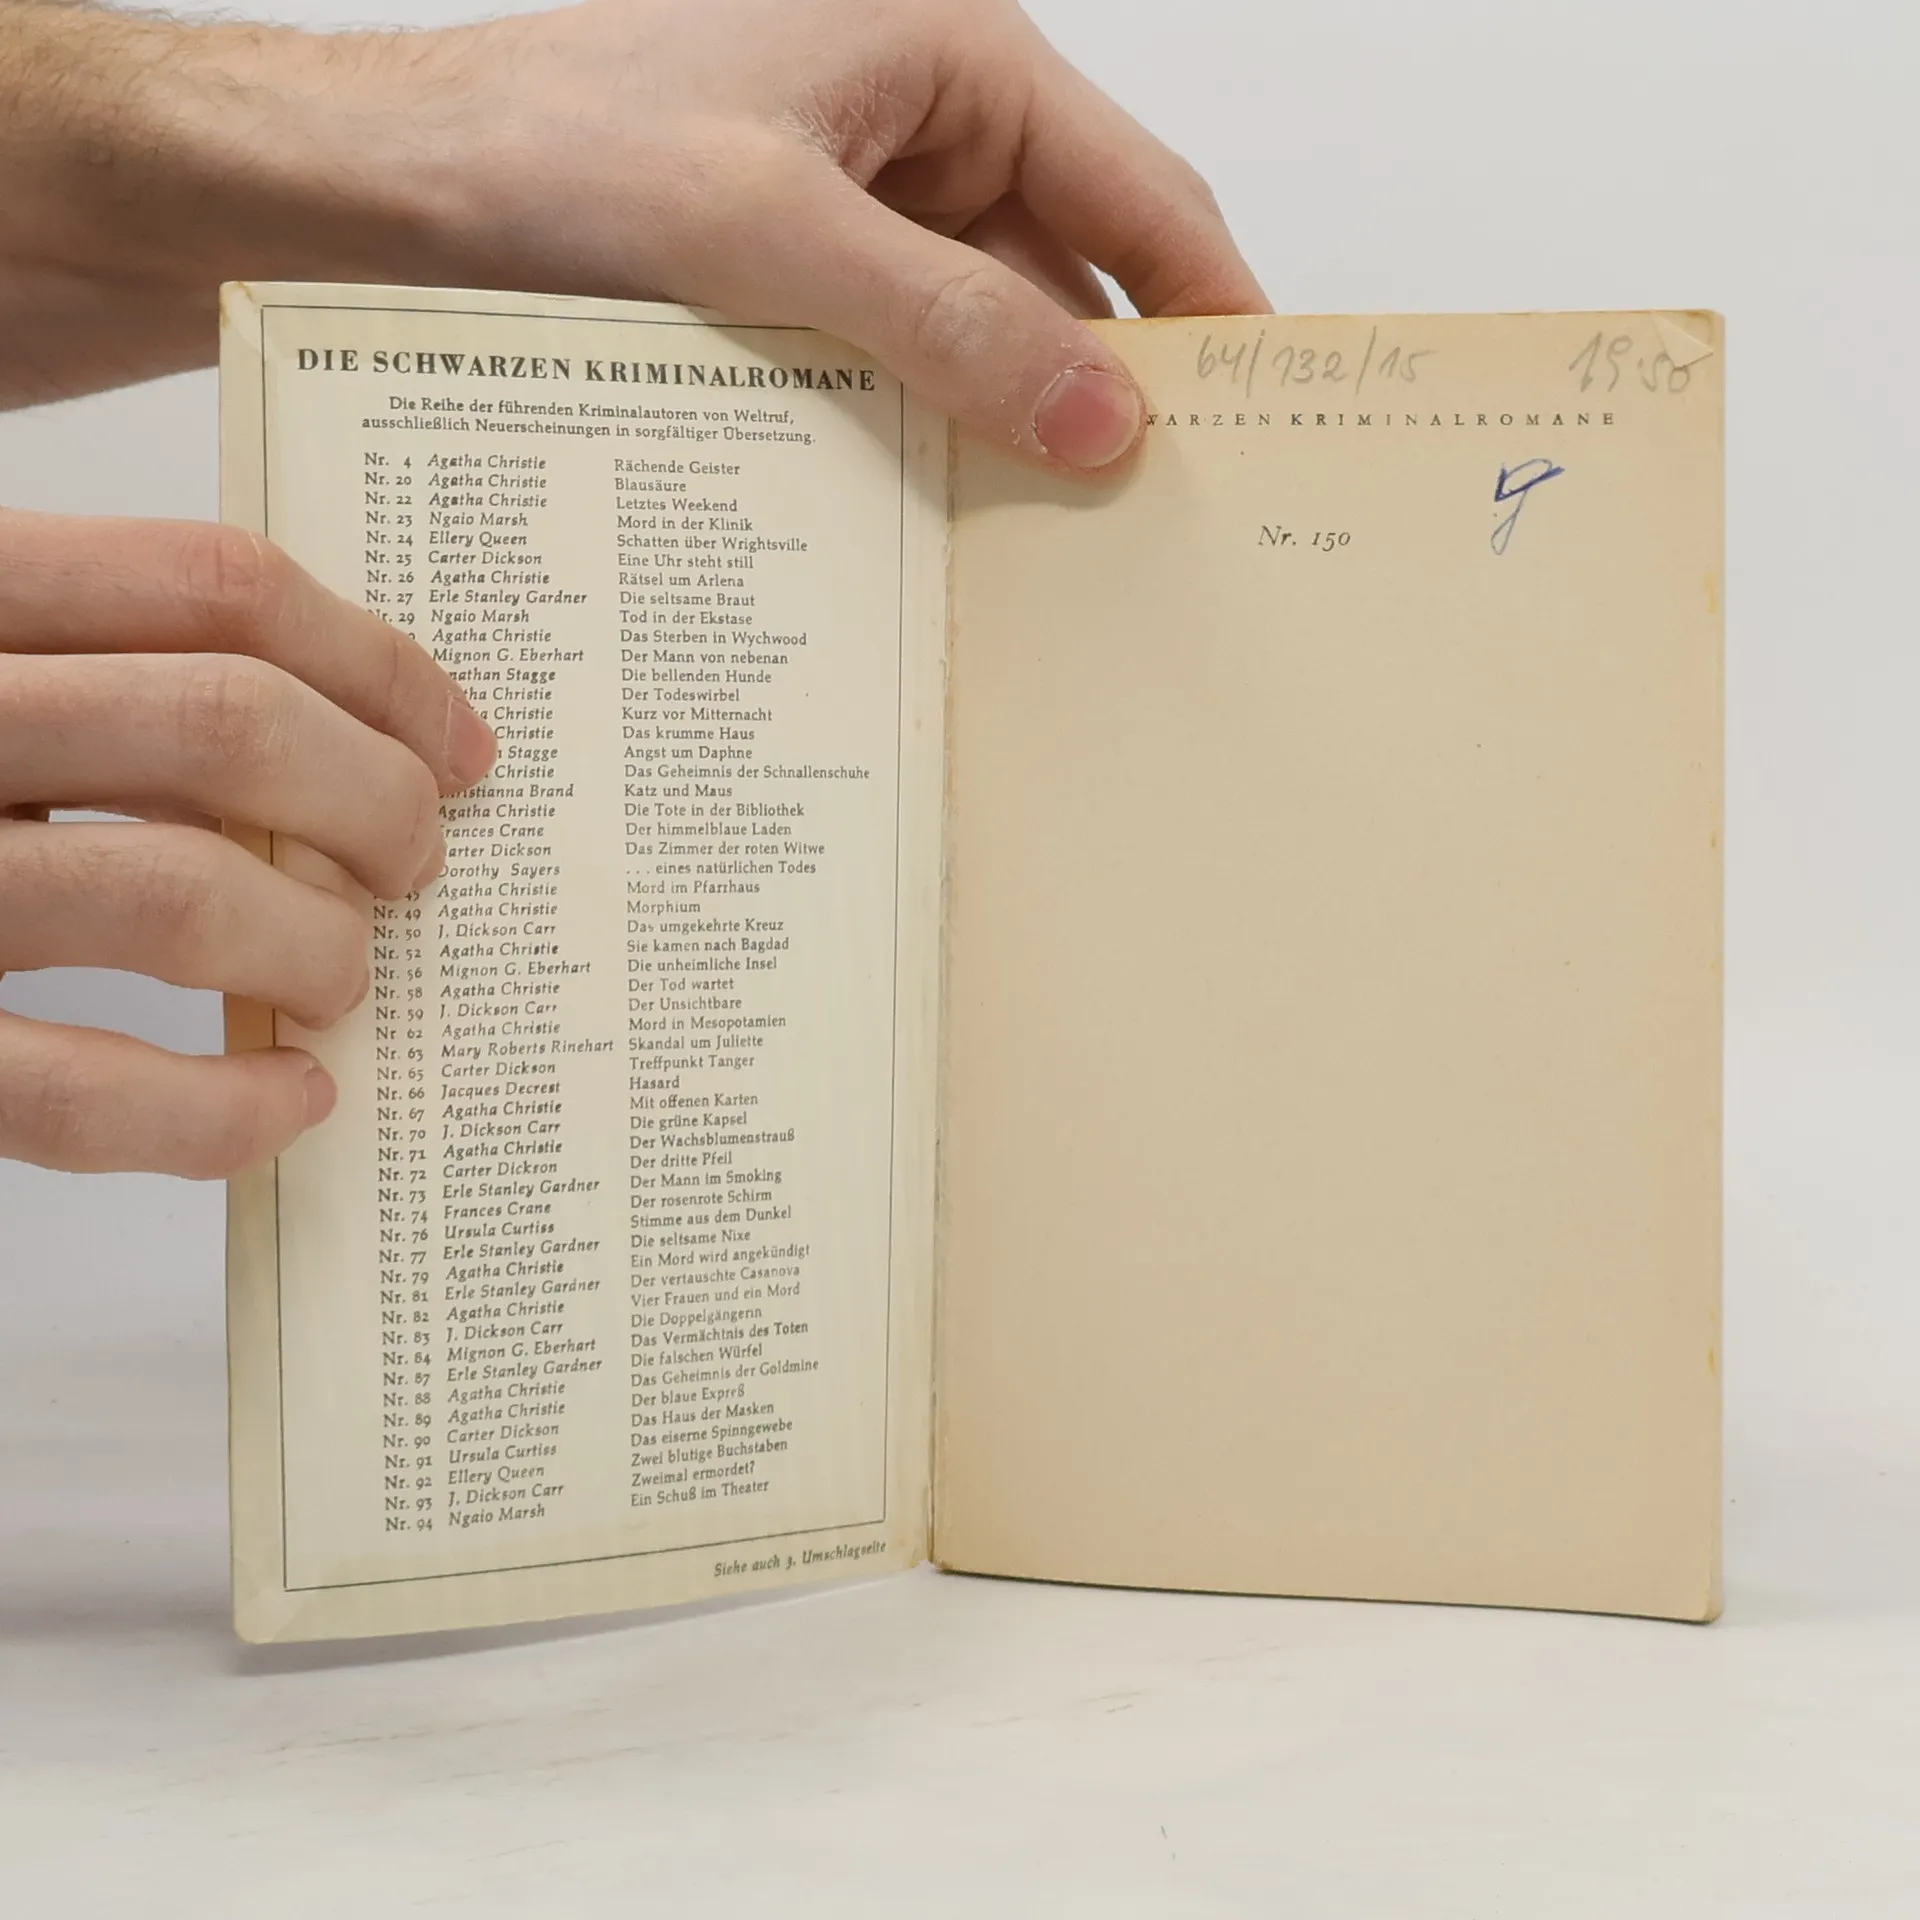 DIE SCHWARZEN KRIMINALROMANE
Die Reihe der führenden Kriminalautoren von Weltruf,
ausschließlich Neuerscheinungen in sorgfältiger Übersetzung.
Nr. 4 Agatha Christie Rächende Geister
Nr. 20 Agatha Christie Blausäure
Nr. 22 Agatha Christie Letztes Weekend
Nr. 23 Ngaio Marsh Mord in der Klinik
Nr. 24 Ellery Queen Schatten über Wrightsville
Nr. 25 Carter Dickson Eine Uhr steht still
Nr. 26 Agatha Christie Rätsel um Arlena
Nr. 27 Erle Stanley Gardner Die seltsame Braut
Nr. 29 Ngaio Marsh Tod in der Ekstase
Agatha Christie Das Sterben in Wychwood
Mignon G. Eberhart Der Mann von nebenan
Stagge Die bellenden Hunde
Christie Der Todeswirbel
Christie Kurz vor Mitternacht
Christie Das krumme Haus
Stagge Angst um Daphne
Christie Das Geheimnis der Schnallenschuhe
Brand Katz und Maus
Agatha Christie Die Tote in der Bibliothek
Crane Der himmelblaue Laden
Dickson Das Zimmer der roten Witwe
Dorothy Sayers . . . eines natürlichen Todes
45 Agatha Christie Mord im Pfarrhaus
Nr. 49 Agatha Christie Morphium
Nr. 50 J. Dickson Carr Das umgekehrte Kreuz
Nr. 52 Agatha Christie Sie kamen nach Bagdad
Nr. 56 Mignon G. Eberhart Die unheimliche Insel
Nr. 58 Agatha Christie Der Tod wartet
Nr. 59 J. Dickson Carr Der Unsichtbare
Nr 62 Agatha Christie Mord in Mesopotamien
Nr. 63 Mary Roberts Rinehart Skandal um Juliette
Nr. 65 Carter Dickson Treffpunkt Tanger
Nr. 66 Jacques Decrest Hasard
Nr. 67 Agatha Christie Mit offenen Karten
Nr. 70 J. Dickson Carr Die grüne Kapsel
Nr. 71 Agatha Christie Der Wachsblumenstrauß
Nr. 72 Carter Dickson Der dritte Pfeil
Nr. 73 Erle Stanley Gardner Der Mann im Smoking
Nr. 74 Frances Crane Der rosenrote Schirm
Nr. 76 Ursula Curtiss Stimme aus dem Dunkel
Nr. 77 Erle Stanley Gardner Die seltsame Nixe
Nr. 79 Agatha Christie Ein Mord wird angekündigt
Nr. 81 Erle Stanley Gardner Der vertauschte Casanova
Nr. 82 Agatha Christie Vier Frauen und ein Mord
Nr. 83 J. Dickson Carr Die Doppelgängerin
Nr. 84 Mignon G. Eberhart Das Vermächtnis des Toten
Nr. 87 Erle Stanley Gardner Die falschen Würfel
Nr. 88 Agatha Christie Das Geheimnis der Goldmine
Nr. 89 Agatha Christie Der blaue Expreß
Nr. 90 Carter Dickson Das Haus der Masken
Nr. 91 Ursula Curtiss Das eiserne Spinngewebe
Nr. 92 Ellery Queen Zwei blutige Buchstaben
Nr. 93 J. Dickson Carr Zweimal ermordet?
Nr. 94 Ngaio Marsh Ein Schuß im Theater
Siehe auch 3. Umschlagseite
64/132/15 19.50
WARZEN KRIMINALROMANE
Nr. 150